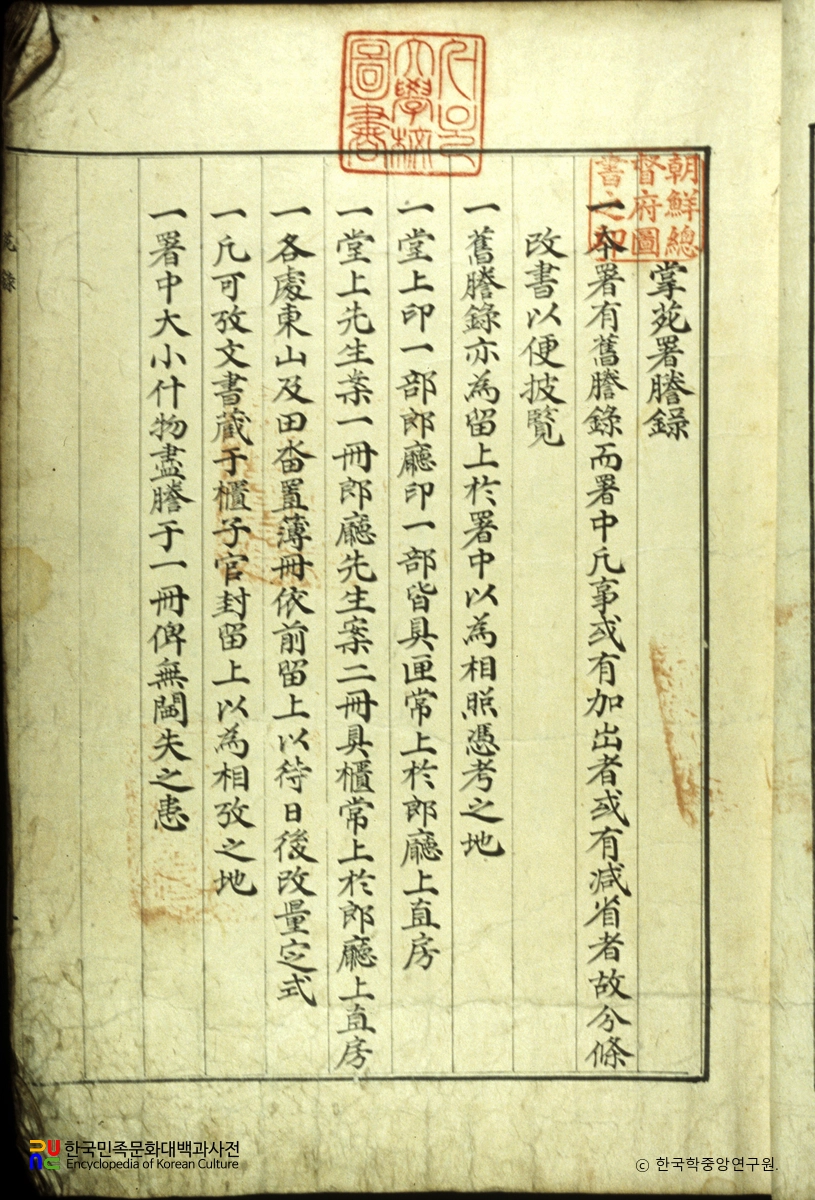 서울大學校圖書
朝鮮總督府圖書之印
掌苑署謄錄
一本署有舊謄錄而署中凡事或有加出者或有减省者故分條
改書以便披覽
一舊謄錄亦為留上於署中以為相照憑考之地
一堂上印一部郎廳印一部皆具匣常上於郎廳上直房
一堂上先生案一冊郎廳先生案二冊具櫃常上於郎廳上直房
一各處東山及田畓置簿冊依前留上以待日後改量定式
一凡可攷文書藏于櫃子官封留上以為相攷之地
一署中大小什物盡謄于一冊俾無閪失之患
苑 錄
한국민족문화대백과사전
Encyclopedia of Korean Culture
© 한국학중앙연구원.